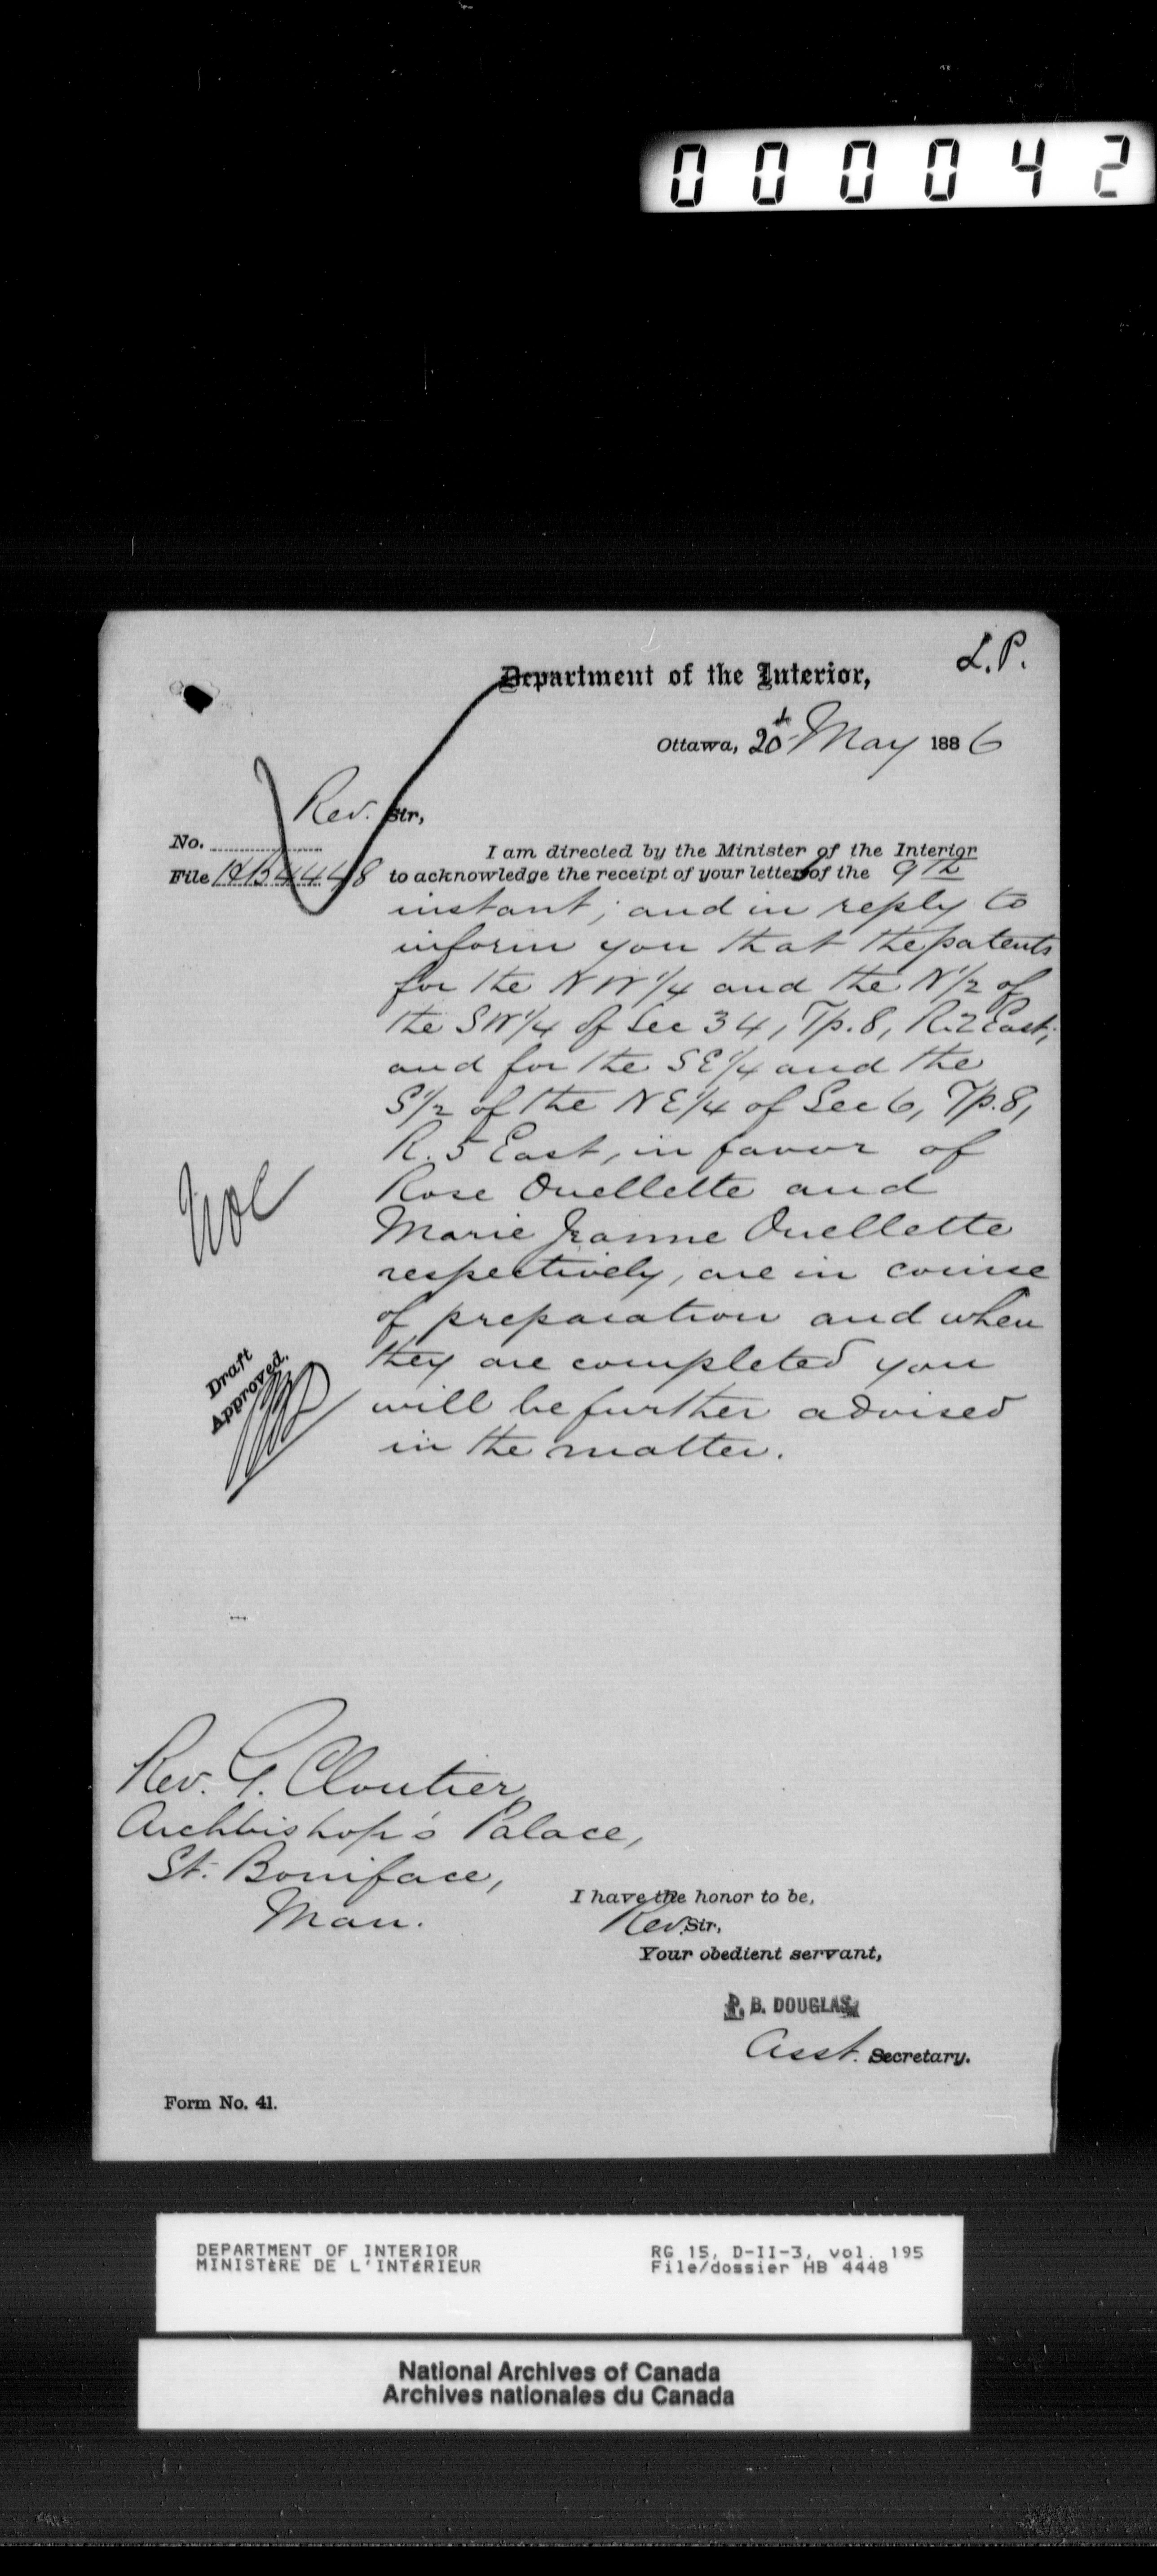 000042
L.P.
Department of the Interior,
Ottawa, 20th May 1886
Rev. Sir,
No.
File HB 4448
I am directed by the Minister of the Interior
to acknowledge the receipt of your letter of the 9th
instant; and in reply to
inform you that the patents
for the NW1/4 and the N1/2 of
the SW1/4 of Sec 34, Tp. 8, R. 2 East;
and for the SE1/4 and the
S1/2 of the NE1/4 of Sec 6, Tp. 8,
R. 5 East, in favor of
Rose Ouellette and
Marie Jeanne Ouellette
respectively, are in course
of preparation and when
they are completed you
will be further advised
in the matter.
Draft
Approved.
Rev. G. Cloutier,
Archbishop's Palace,
St. Boniface,
Man.
I have the honor to be,
Rev. Sir,
Your obedient servant,
P. B. DOUGLAS,
Asst. Secretary.
Form No. 41.
DEPARTMENT OF INTERIOR
MINISTÈRE DE L'INTÉRIEUR
RG 15, D-II-3, vol. 195
File/dossier HB 4448
National Archives of Canada
Archives nationales du Canada